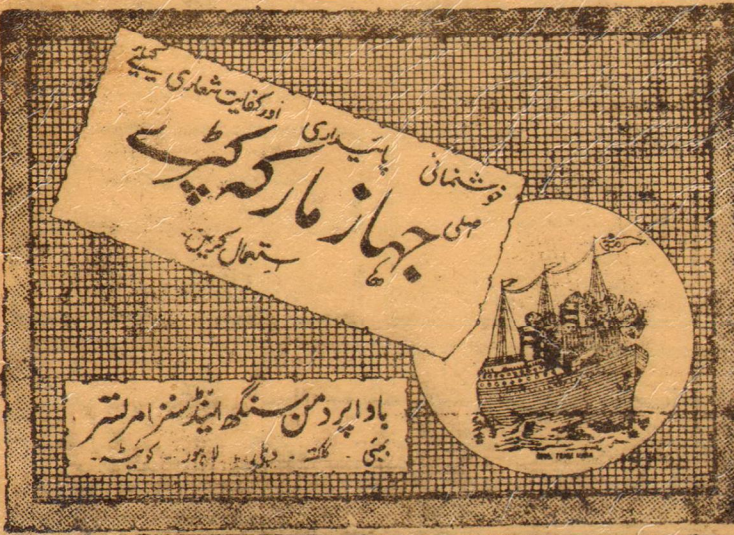 خوشنمائی پائیداری اور کفایت شعاری کیلئے
اصلی جہاز مارکہ کپڑے
استعمال کریں
باوا پردمن سنگھ اینڈ سنز امرتسر
بمبئی - کلکتہ - دہلی - لاہور - کوئٹہ -